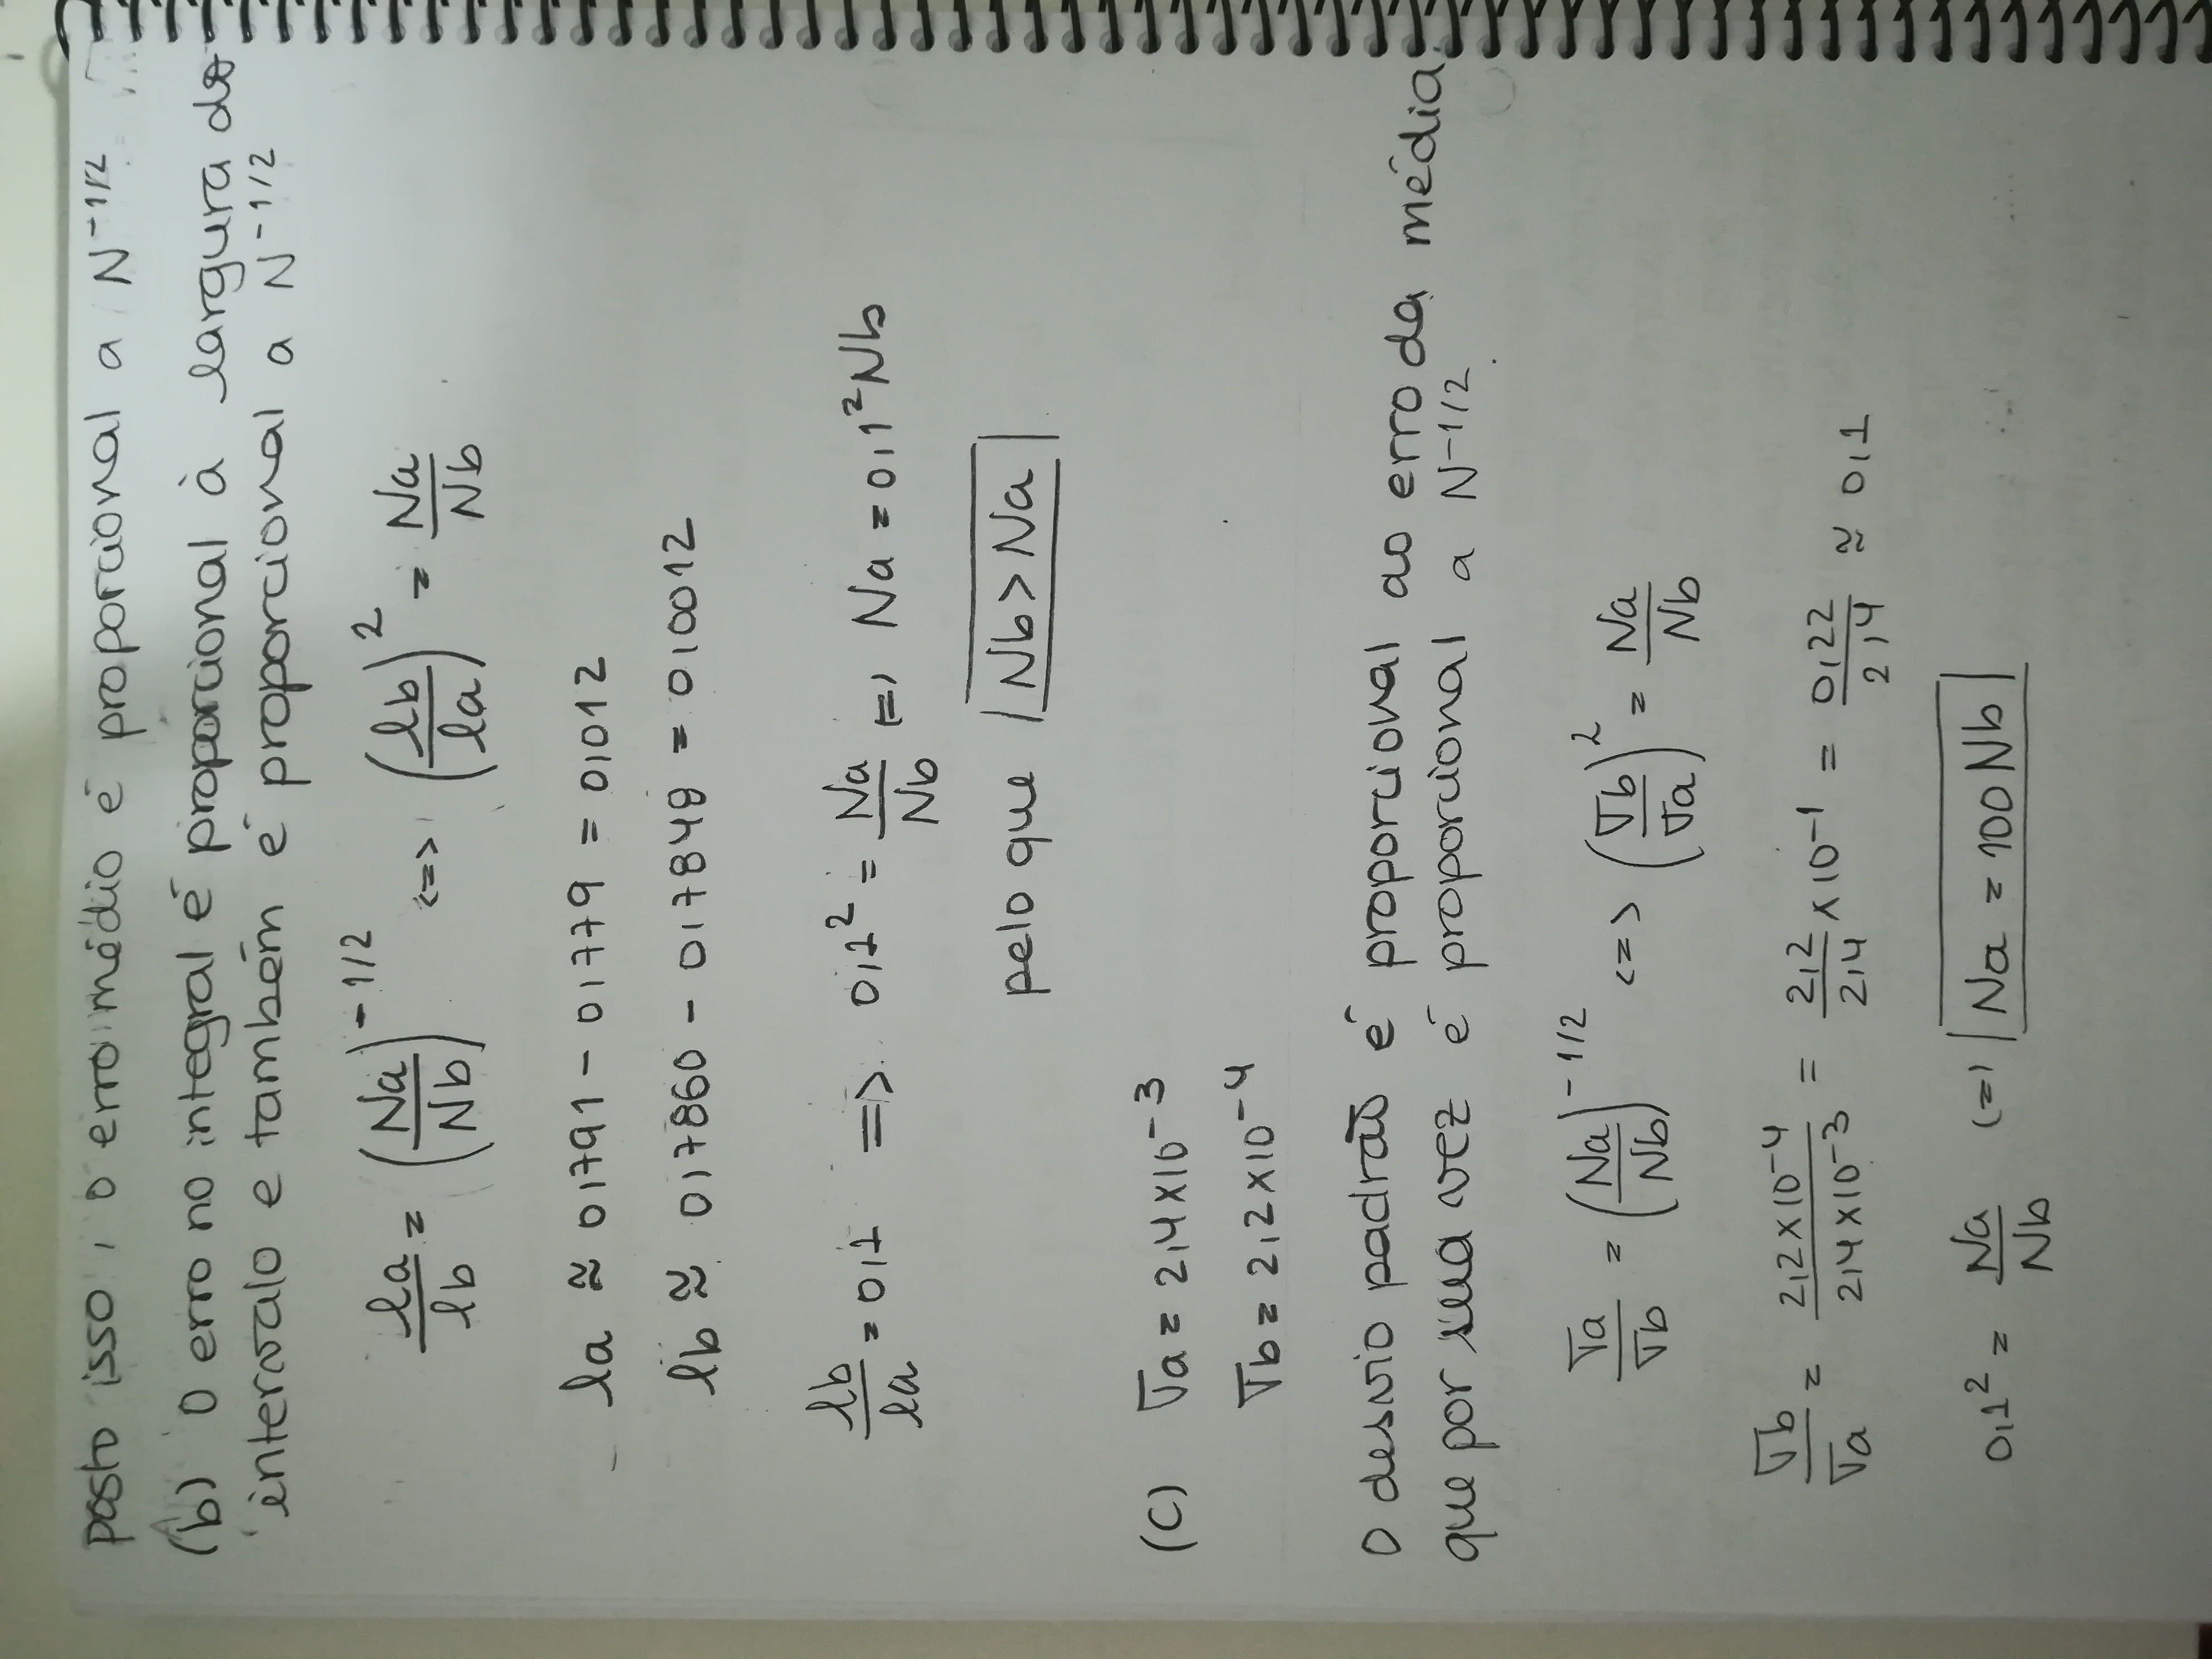 posto isso, o erro médio é proporcional a N^-1/2
(b) O erro no integral é proporcional à largura do
intervalo e também é proporcional a N^-1/2
la/lb = (Na/Nb)^-1/2 <=> (lb/la)^2 = Na/Nb
la ≈ 0,791 - 0,779 = 0,012
lb ≈ 0,7860 - 0,7848 = 0,0012
lb/la = 0,1 => 0,1^2 = Na/Nb (=) Na = 0,1^2 Nb
pelo que Nb > Na
(C) σa = 2,4×10^-3
σb = 2,2×10^-4
O desvio padrão é proporcional ao erro da média
que por sua vez é proporcional a N^-1/2.
σa/σb = (Na/Nb)^-1/2 <=> (σb/σa)^2 = Na/Nb
σb/σa = 2,2×10^-4/2,4×10^-3 = 2,2/2,4 ×10^-1 = 0,22/2,4 ≈ 0,1
0,1^2 = Na/Nb (=) Na = 100Nb